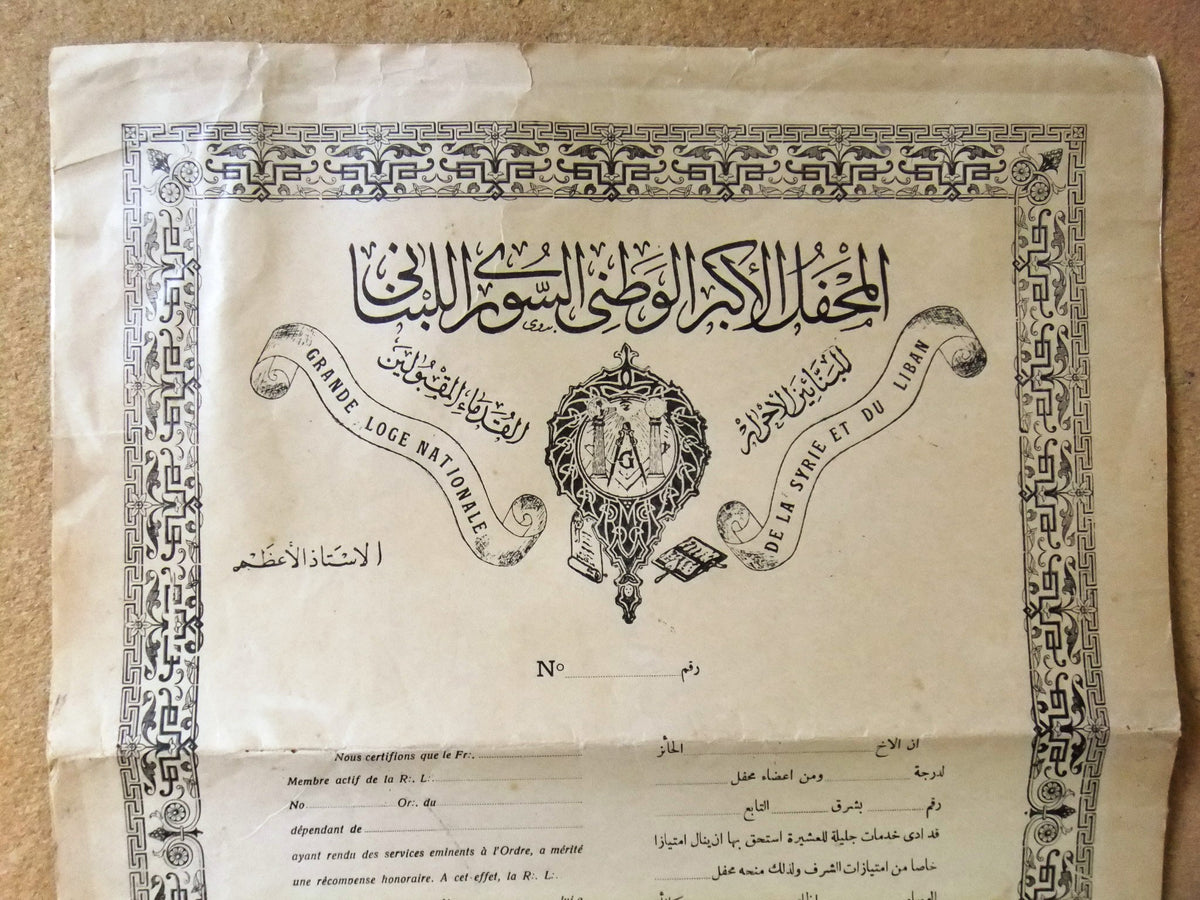 المحفل الأكبر الوطني السوري اللبناني
بدوي
للبنائين الاحرار
القدماء المقبولين
GRANDE LOGE NATIONALE
DE LA SYRIE ET DU LIBAN
G
الاستاذ الأعظم
No ............ رقم
Nous certifions que le Fr:. ............
Membre actif de la R:. L:. ............
No ............ Or:. du ............
dépendant de ............
ayant rendu des services eminents à l'Ordre, a mérité
une récompense honoraire. A cet effet, la R:. L:.
lui a
ان الاخ ............ الحائز
لدرجة ............ ومن اعضاء محفل ............
رقم ............ بشرق ............ التابع ............
قد ادى خدمات جليلة للعشيرة استحق بها ان ينال امتيازا
خاصا من امتيازات الشرف ولذلك منحه محفل ............